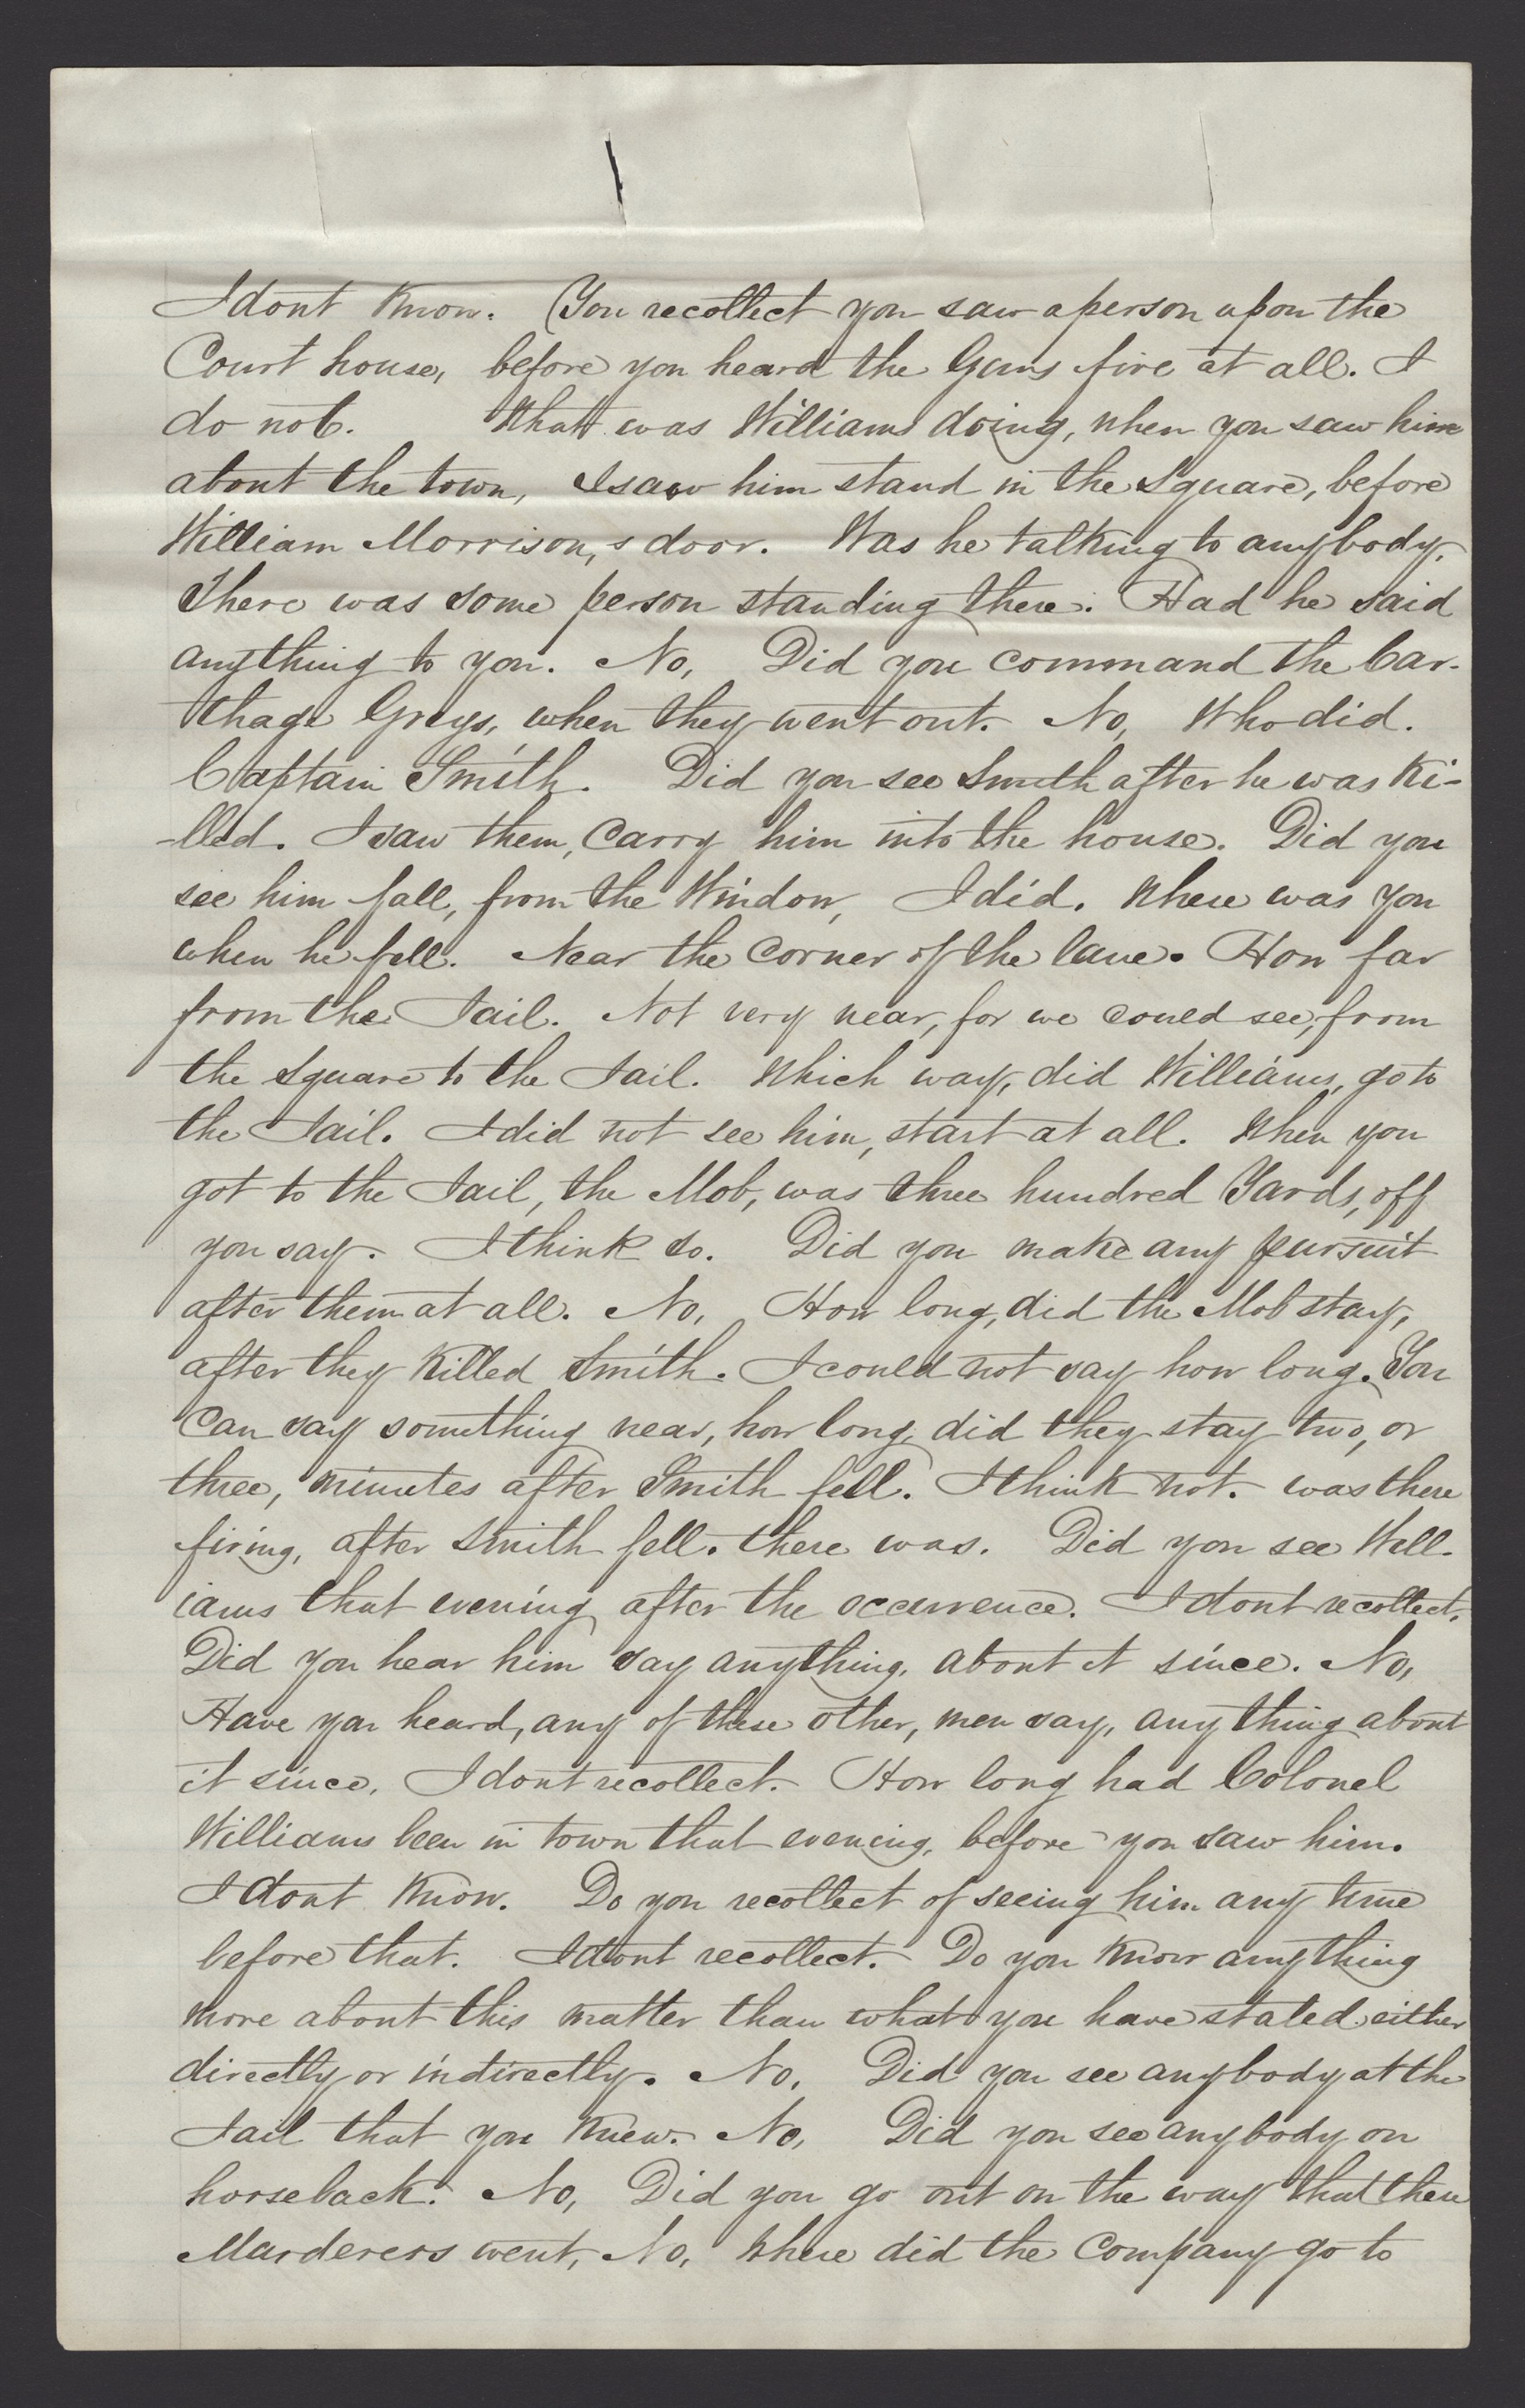 I dont Know. (You recollect you saw a person upon the
Court house, before you heard the Guns fire at all. I
do not. What was Williams doing, when you saw him
about the town, I saw him stand in the Square, before
William Morrison,s door. Was he talking to anybody,
There was some person standing there. Had he said
anything to you. No, Did you command the Car-
thage Greys, when they went out. No, Who did.
Captain Smith. Did you see Smith after he was Ki-
-lled. I saw them, Carry him into the house. Did you
see him fall, from the Window, I did. Where was you
when he fell. Near the Corner of the lane. How far
from the Jail. Not very near, for we could see, from
the Square to the Jail. Which way, did Williams, go to
the Jail. I did not see him, start at all. When you
got to the Jail, the Mob, was three hundred Yards, off
you say. I think so. Did you make any pursuit
after them at all. No, How long, did the Mob stay,
after they Killed Smith. I could not say how long. You
Can say something near, how long, did they stay two, or
three, minutes after Smith fell. I think not. was there
firing, after Smith fell. there was. Did you see Will-
iams that evening after the occurrence. I dont recollect.
Did you hear him say anything, about it since. No,
Have you heard, any of these other, men say, any thing about
it since, I dont recollect. How long had Colonel
Williams been in town that evening, before you saw him.
I dont Know. Do you recollect of seeing him any time
before that. I dont recollect. Do you Know anything
more about this matter than what you have stated either
directly or indirectly. No, Did you see anybody at the
Jail that you Knew. No, Did you see anybody on
horseback. No, Did you go out on the way that these
Marderers went, No, Where did the Company go to